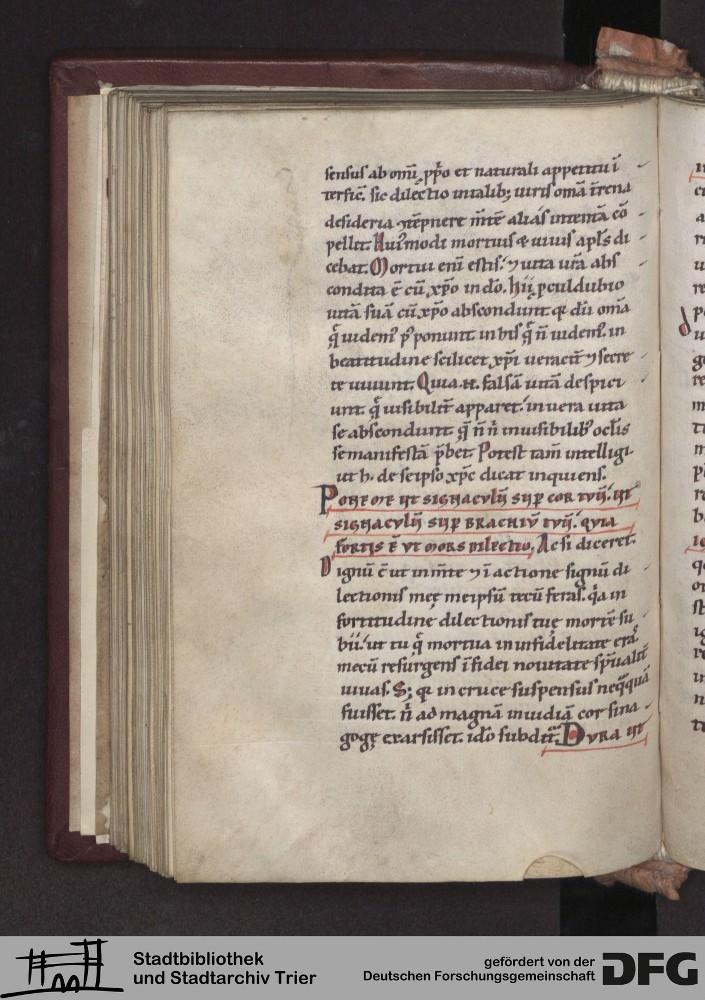 sensus ab om̄i ꝓp̄o et naturali appetitu ī
terfic̄. sic dilectio in talibꝫ uiris om̄a t̄rena
desideria ꝯtēpnere m̄te alias intenta cō
pellit. Huꝰmodi mortuis & uiuis apl̄s di
cebat. Mortui eni estis. ⁊ uita ur̄a abs
condita ē cū xp̄o in dō. hii ꝓculdubio
uitā suā cū xp̄o abscondunt qꝛ dū om̄a
q̄ uidenꝉ p̄ponunt in his q̄ n̄ uidenꝉ. in
beatitudine scilicet xp̄i ueracit̄ ⁊ secre
te uiuunt. Quia .n. falsā uitā despici
unt. q̄ uisibilit̄ apparet. in uera uita
se abscondunt. q̄ n̄ n̄ inuisibilibꝰ ocl̄is
se manifestā p̄bet. Potest tam̄ intelligi
ut h. de seipso xp̄c dicat inquiens.
Pone me ut signaculū sup̄ cor tuū. ut
signaculū sup̄ brachiū tuū. quia
fortis ē ut mors dilectio, Ac si diceret.
Dignū ē ut in m̄te ⁊ ī actione signū di
lectionis meę meipsū tecū feras. q̄a in
fortitudine dilectionis tuę mortē su
bii. ut tu q̄ mortua in infidelitate eras
mecū resurgens ī fidei nouitate sp̄ualit̄
uiuas. Sꝫ qꝛ in cruce suspensus neq̄quā
fuisset. n̄ ad magnā inuidiā cor sina
gogę exarsisset. idō subdit̄. Dura ut
Stadtbibliothek
und Stadtarchiv Trier
gefördert von der
Deutschen Forschungsgemeinschaft
DFG